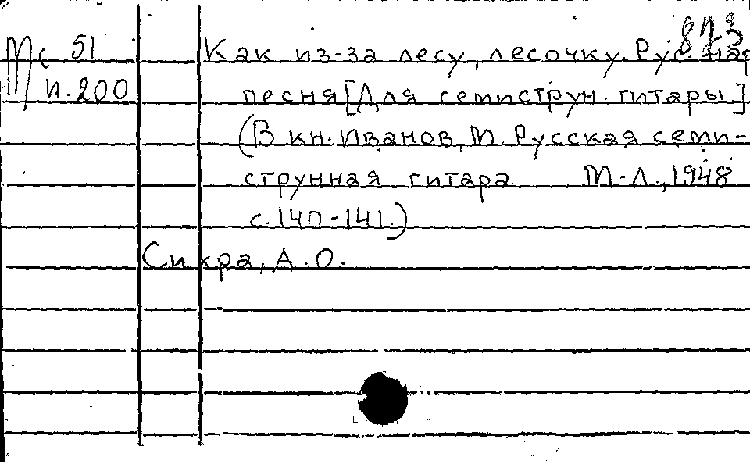 873
Мс 51 Как из-за лесу, лесочку. Рус. нар
п.200 песня [Для семиструн. гитары.]
(В кн. Иванов, М. Русская семи-
струнная гитара М-Л., 1948
с.140-141.)
Сихра, А.О.